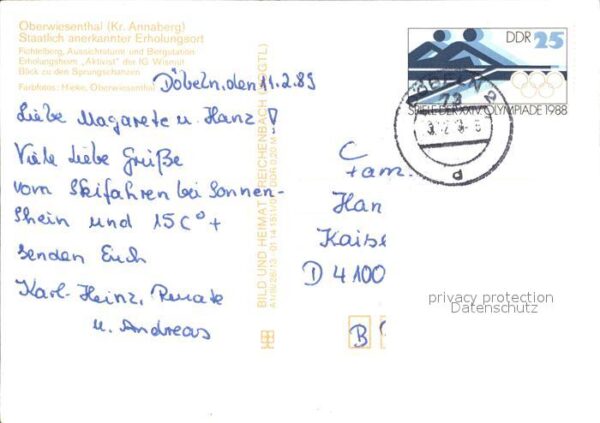 Oberwiesenthal (Kr. Annaberg)
Staatlich anerkannter Erholungsort
Fichtelberg, Aussichtsturm und Bergstation
Erholungsheim „Aktivist“ der IG Wismut
Blick zu den Sprungschanzen
Farbfotos: Mieke, Oberwiesenthal
Döbeln, den 11.2.89
Liebe Magarete u. Hanz!
Viele liebe Grüße
vom Skifahren bei Sonnen-
shein und 15C°+
senden Euch
Karl-Heinz, Renate
u. Andreas
BILD UND HEIMAT REICHENBACH (VOGTL)
DDR 25
SPIELE DER XXIV. OLYMPIADE 1988
d
Fam.
Han
Kaise
D 4100
B
privacy protection
Datenschutz